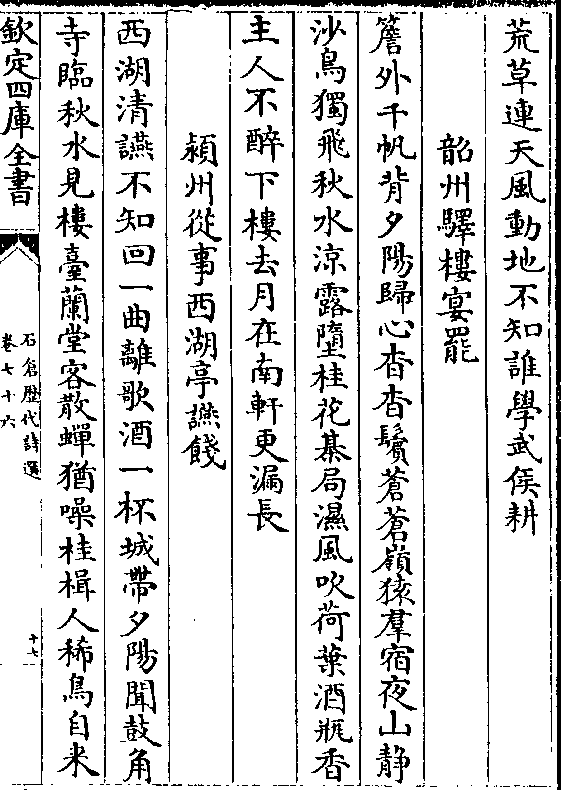 荒草連天風動地不知誰學武侯耕
韶州驛樓宴罷
簷外千帆背夕陽歸心杳杳鬢蒼蒼嶺猿羣宿夜山静
沙鳥獨飛秋水凉露墮桂花棊局濕風吹荷葉酒瓶香
主人不醉下樓去月在南軒更漏長
潁州從事西湖亭讌餞
西湖清讌不知回一曲離歌酒一杯城帶夕陽聞鼓角
寺臨秋水見樓臺蘭堂客散蟬猶噪桂楫人稀鳥自来
欽定四庫全書
石倉歴代詩選
卷七十六
十七